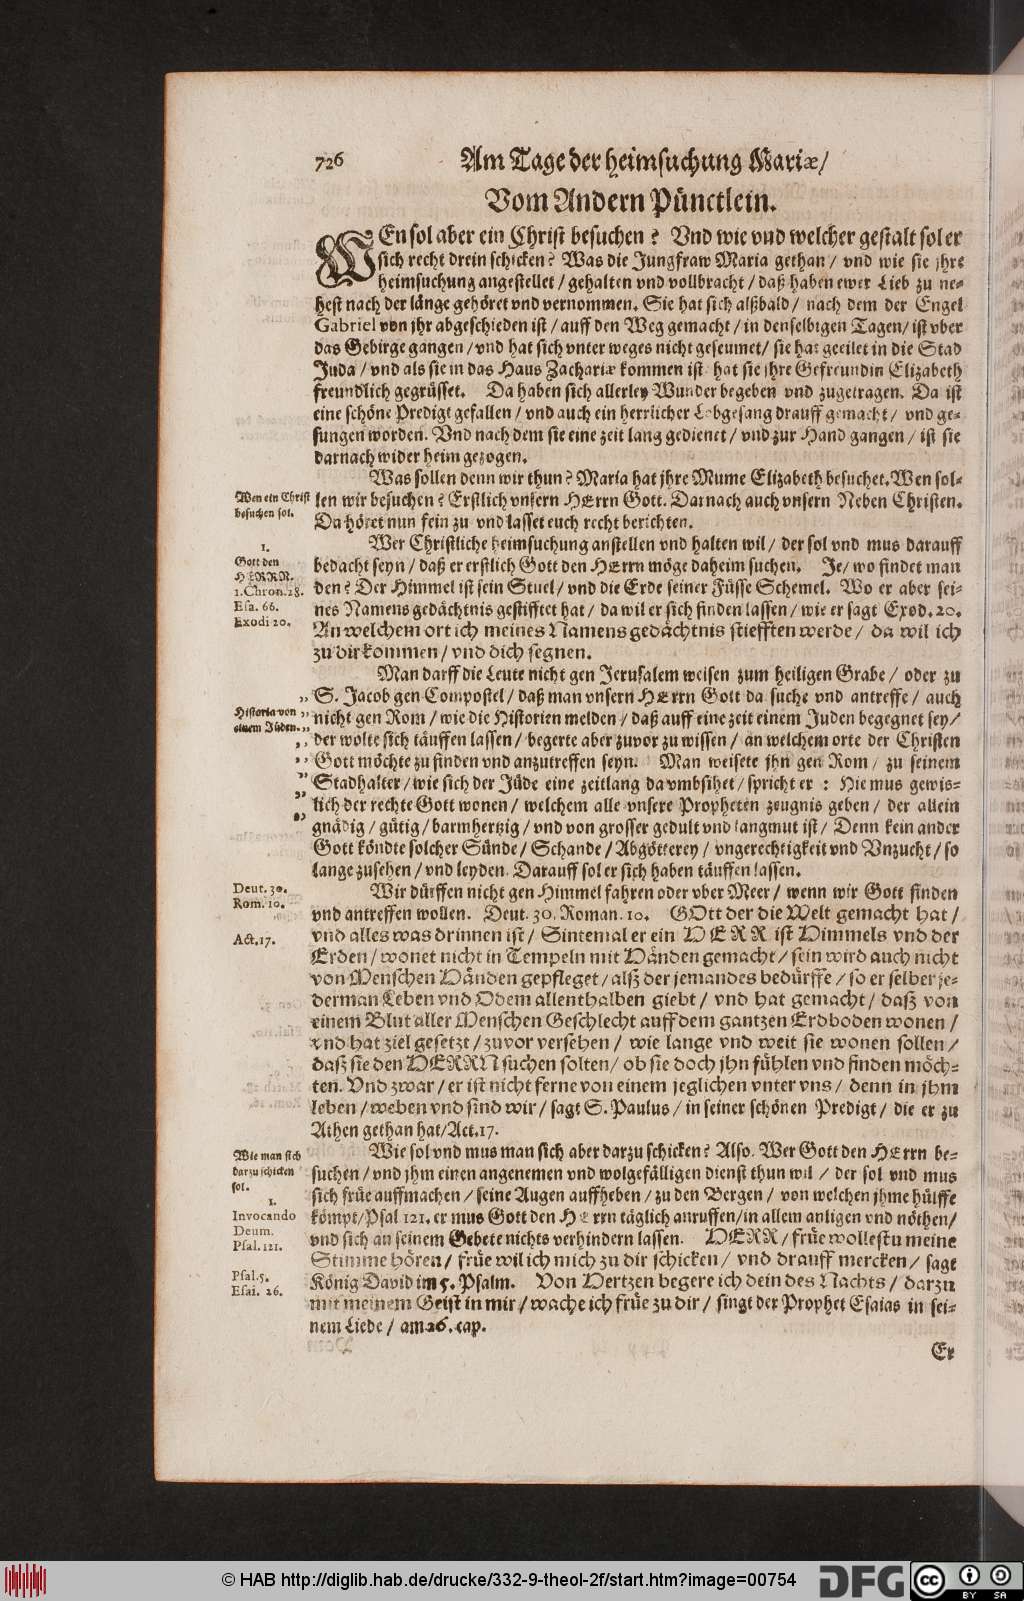 726
Am Tage der heimsuchung Mariæ/
Vom Andern Pünctlein.
WEn sol aber ein Christ besuchen? Vnd wie vnd welcher gestalt sol er
sich recht drein schicken? Was die Jungfraw Maria gethan/ vnd wie sie jhre
heimsuchung angestellet/ gehalten vnd vollbracht/ daß haben ewer Lieb zu ne-
hest nach der länge gehöret vnd vernommen. Sie hat sich alßbald/ nach dem der Engel
Gabriel von jhr abgeschieden ist/ auff den Weg gemacht/ in denselbigen Tagen/ ist vber
das Gebirge gangen/ vnd hat sich vnter weges nicht geseumet/ sie hat geeilet in die Stad
Juda/ vnd als sie in das Haus Zachariæ kommen ist hat sie jhre Gefreundin Elizabeth
freundlich gegrüsset. Da haben sich allerley Wunder begeben vnd zugetragen. Da ist
eine schöne Predigt gefallen/ vnd auch ein herrlicher Lobgesang drauff gemacht/ vnd ge-
sungen worden. Vnd nach dem sie eine zeit lang gedienet/ vnd zur Hand gangen/ ist sie
darnach wider heim gezogen.
Was sollen denn wir thun? Maria hat jhre Mume Elizabeth besuchet. Wen sol-
len wir besuchen? Erstlich vnsern HErrn Gott. Darnach auch vnsern Neben Christen.
Da höret nun fein zu vnd lasset euch recht berichten.
Wen ein Christ
besuchen sol.
Wer Christliche heimsuchung anstellen vnd halten wil/ der sol vnd mus darauff
bedacht seyn/ daß er erstlich Gott den HErrn möge daheim suchen. Je/ wo findet man
den? Der Himmel ist sein Stuel/ vnd die Erde seiner Füsse Schemel. Wo er aber sei-
nes Namens gedächtnis gestifftet hat/ da wil er sich finden lassen/ wie er sagt Exod. 20.
An welchem ort ich meines Namens gedächtnis stiefften werde/ da wil ich
zu dir kommen/ vnd dich segnen.
1.
Gott den
HERRN.
1. Chron. 28.
Esa. 66.
Exodi 20.
Man darff die Leute nicht gen Jerusalem weisen zum heiligen Grabe/ oder zu
S. Jacob gen Compostel/ daß man vnsern HErrn Gott da suche vnd antreffe/ auch
nicht gen Rom/ wie die Historien melden/ daß auff eine zeit einem Juden begegnet sey/
der wolte sich täuffen lassen/ begerte aber zuvor zu wissen/ an welchem orte der Christen
Gott möchte zu finden vnd anzutreffen seyn. Man weisete jhn gen Rom/ zu seinem
Stadhalter/ wie sich der Jüde eine zeitlang da vmbsihet/ spricht er: Hie mus gewis-
lich der rechte Gott wonen/ welchem alle vnsere Propheten zeugnis geben/ der allein
gnädig/ gütig/ barmhertzig/ vnd von grosser gedult vnd langmut ist/ Denn kein ander
Gott köndte solcher Sünde/ Schande/ Abgötterey/ vngerechtigkeit vnd Vnzucht/ so
lange zusehen/ vnd leyden. Darauff sol er sich haben täuffen lassen.
Historia von
einem Jüden.
Wir dürffen nicht gen Himmel fahren oder vber Meer/ wenn wir Gott finden
vnd antreffen wollen. Deut. 30. Roman. 10. GOtt der die Welt gemacht hat/
vnd alles was drinnen ist/ Sintemal er ein HERR ist Himmels vnd der
Erden/ wonet nicht in Tempeln mit Händen gemacht/ sein wird auch nicht
von Menschen Händen gepfleget/ alß der jemandes bedürffe/ so er selber je-
derman Leben vnd Odem allenthalben giebt/ vnd hat gemacht/ daß von
einem Blut aller Menschen Geschlecht auff dem gantzen Erdboden wonen/
vnd hat ziel gesetzt/ zuvor versehen/ wie lange vnd weit sie wonen sollen/
daß sie den HERRN suchen solten/ ob sie doch jhn fühlen vnd finden möch-
ten. Vnd zwar/ er ist nicht ferne von einem jeglichen vnter vns/ denn in jhm
leben/ weben vnd sind wir/ sagt S. Paulus/ in seiner schönen Predigt/ die er zu
Athen gethan hat/ Act. 17.
Deut. 30.
Rom. 10.
Act. 17.
Wie sol vnd mus man sich aber darzu schicken? Also. Wer Gott den HErrn be-
suchen/ vnd jhm einen angenemen vnd wolgefälligen dienst thun wil/ der sol vnd mus
sich früe auffmachen/ seine Augen auffheben/ zu den Bergen/ von welchen jhme hülffe
kömpt/ Psal 121. er mus Gott den HErrn täglich anruffen/ in allem anligen vnd nöthen/
vnd sich an seinem Gebete nichts verhindern lassen. HERR/ früe wollestu meine
Stimme hören/ früe wil ich mich zu dir schicken/ vnd drauff mercken/ sagt
König David im 5. Psalm. Von Hertzen begere ich dein des Nachts/ darzu
mit meinem Geist in mir/ wache ich früe zu dir/ singt der Prophet Esaias in sei-
nem Liede/ am 26. cap.
Wie man sich
darzu schicken
sol.
1.
Invocando
Deum.
Psal. 121.
Psal. 5.
Esai. 26.
Er
© HAB http://diglib.hab.de/drucke/332-9-theol-2f/start.htm?image=00754
DFG
cc
BY SA